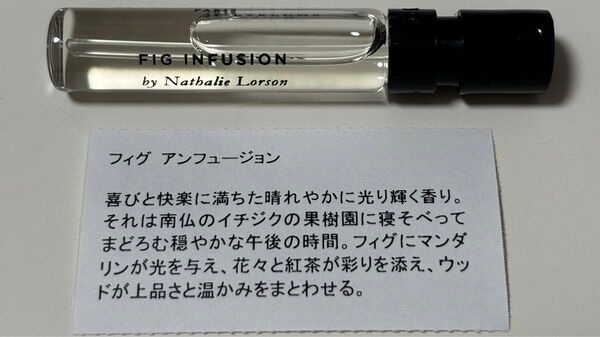 PARIS
FIG INFUSION
by Nathalie Lorson
フィグ アンフュージョン
喜びと快楽に満ちた晴れやかに光り輝く香り。
それは南仏のイチジクの果樹園に寝そべって
まどろむ穏やかな午後の時間。フィグにマンダ
リンが光を与え、花々と紅茶が彩りを添え、ウッ
ドが上品さと温かみをまとわせる。